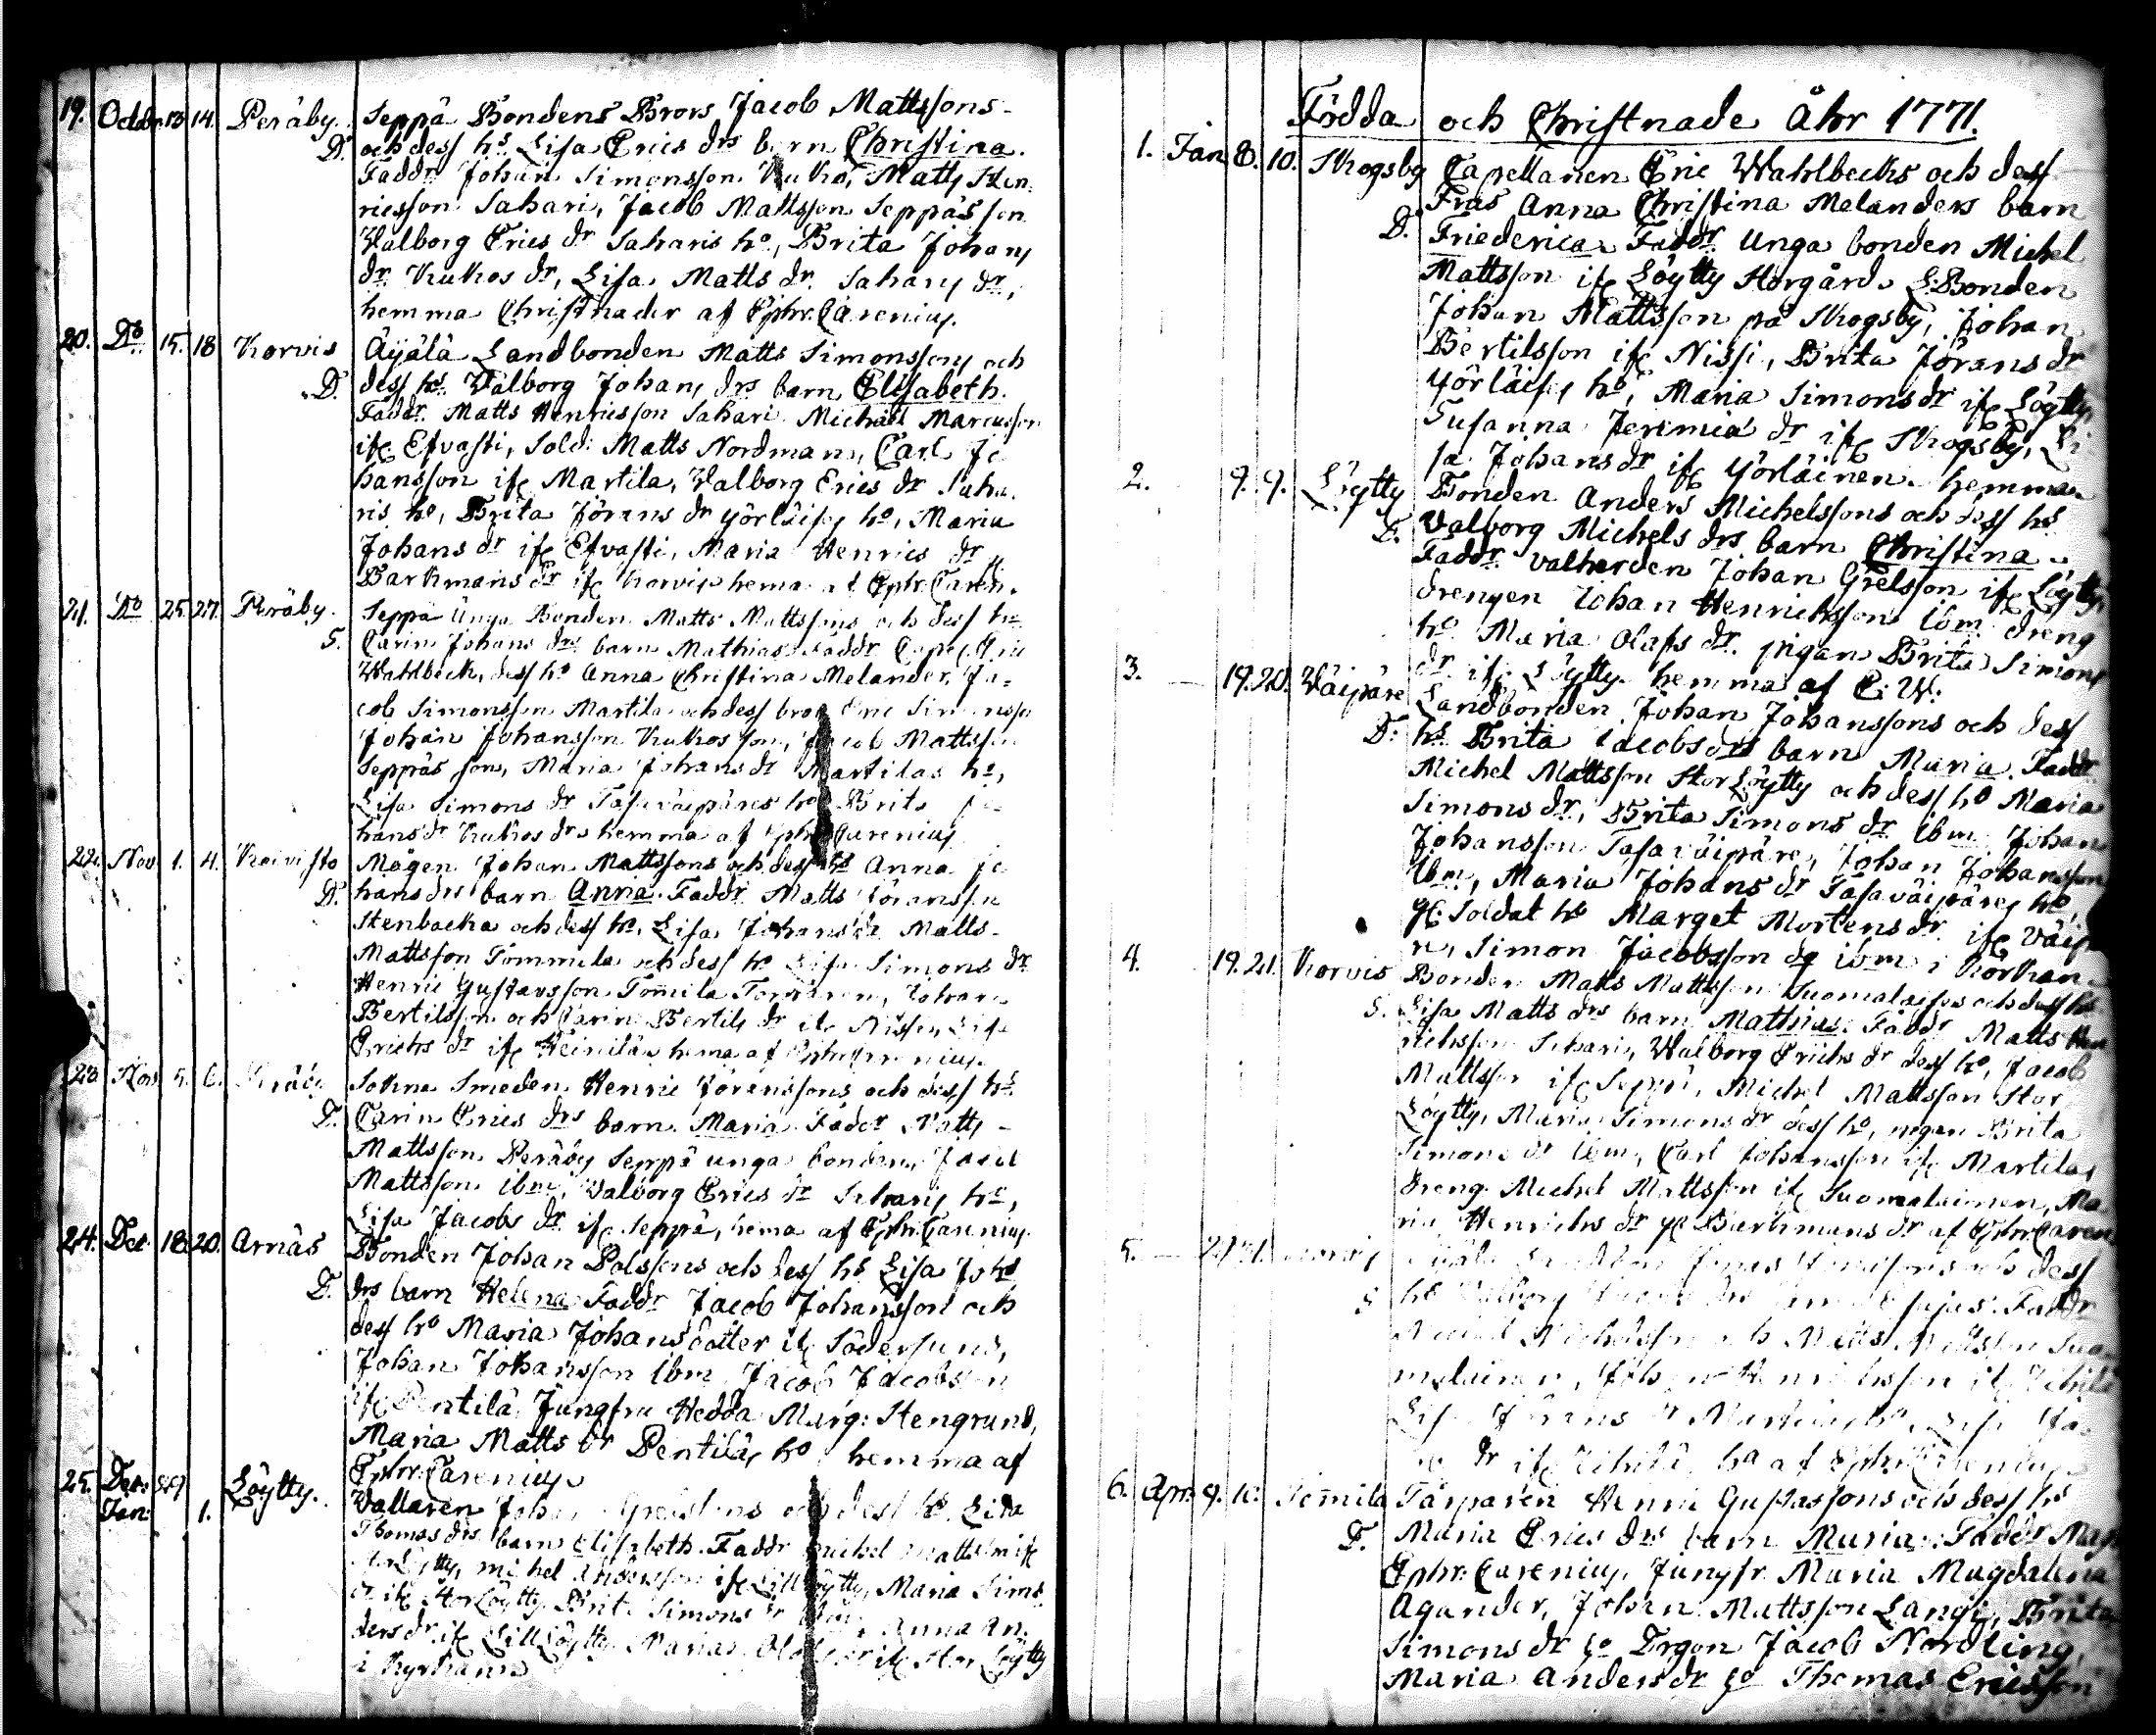 19. Octobr. 13 14. Peräby. Seppä Bondens Brors Jacob Mattssons
D. och dess hs. Lisa Erics drs barn Christina.
Faddr. Johan Simonsson Kuko, Matts Hen
ricsson Sahari, Jacob Mattsson Seppäs son
Valborg Erics dr Saharis ho, Brita Johans
dr. Kukos dr, Lisa Matts dr. Saharis dr,
hemma Christnader af Ephr. Carenius.
20. Do 15. 18 Korvis Äyälä Landbonden Matts Simonssons och
D. dess hs. Walborg Johans drs barn Elisabeth.
Faddr. Matts Henricsson Sahari Michael Marcusson
ifr. Efvasti, Sold. Matts Nordman, Carl Jo
hansson ifr Martila, Valborg Erics dr Saha
ris ho, Brita Jörans dr Yörläises ho, Maria
Johans dr ifr Efvasti, Maria Henrics dr
Barkmans dr ifr Korvis hema af Ephr. Caren.
21. Do 25. 27. Peräby. Seppä Unga Bonden Matts Mattssons och dess hs
S. Carin Johans drs barn Mathias. Faddr Capel. Eric
Wahlbeck, dess ho Anna Christina Melander, Ja=
cob Simonsson Martila och dess bror Eric Simonsson
Johan Johansson Kukos son, Jacob Mattsson
Seppäs son, Maria Johans dr Martilas ho,
Lisa Simons dr Tasaväipäres ho Brita Jo
hans dr Kukos dr hemma af Ephr Carenius
22. Nov. 1. 4. Koivisto Mågen Johan Mattssons och dess hs Anna Jo
D. hans drs barn Anna. Faddr. Matts Jöransson
Stenbacka och dess ho, Lisa Johans dr Matts
Mattsson Tommila och dess ho Lisa Simons dr
Henric Gustavsson Tomila Torparen, Johan
Bertilsson och Carin Bertils dr ifr Nissi, Lisa
Erichs dr ifr Heinilä hema af Ephr Carenius.
23. Nov. 5. 6. Peräby Sokne Smeden Henric Jöranssons och dess hs.
D. Carin Erics drs barn Maria Faddr Matts
Mattsson Peräby Seppä unga bonden, Jacob
Mattsson ibm, Valborg Erics dr Saharis ho,
Lisa Jacobs dr ifr Seppä, hema af Ephr. Carenius.
24. Dec. 18. 20. Arnäs Bonden Johan Polssons och dess hs Lisa Johs
D. drs barn Helena Faddr Jacob Johansson och
dess ho Maria Johansdotter ifr Södersund,
Johan Johansson ibm Jacob Jacobsson
ifr Pentilä Jungfru Hedda Marg: Stengrund,
Maria Matts dr Pentiläs ho hemma af
Ephr. Carenius
25. Dec. Löytty. Vallaren Johan Grelssons och dess hs. Lisa
Jan: 1. Thomas drs barn Elisabeth. Faddr Michel Mattsson ifr
StorLöytty, michel Andersson ifr LillLöytty, Maria Simo
dr ifr StorLöytty Brita Simons dr ibm, Anna An
ders dr ifr LillLöytty Maria Olofs dr ifr StorLöytty
i Kyrkan
Födda och Christnade Åhr 1771.
1. Jan 8. 10. Skogsby Capellanen Eric Wahlbecks och dess
Frus Anna Christina Melanders barn
D. Friederica. Faddr. Unga bonden Michel
Mattsson ifr Löytty Storgård. L:Bonden
Johan Mattsson på Skogsby, Johan
Bertilsson ifr Nissi, Brita Jörans dr
Yörläises ho, Maria Simons dr ifr Löytty,
Susanna Jeremiæ dr ifr Skogsby, Li
sa Johans dr ifr Yörläinen. hemma
2. 9. 9. Löytty Bonden Anders Michelssons och dess hs
D. Valborg Michels drs barn Christina.
Faddr. valherden Johan Grelsson ifr Löytty,
drengen Johan Henrichsson ibm dreng
ho Maria Olofs dr. pigan Brita Simons
dr ifr Löytty hemma af E: W.
3. 19. 20. Wäipäre Landbonden Johan Johanssons och dess
D. hs Brita Jacobs drs barn Maria. Faddr
Michel Mattsson StorLöytty och dess ho Maria
Simons dr, Brita Simons dr ibm Johan
Johansson Tasaväipäre, Johan Johansson
ibm, Maria Johans dr Tasaväipäres ho,
gl. Soldat ho Marget Mortens dr ifr Väip
re, Simon Jacobsson do ibm i Körkan
4. 19. 21. Korvis Bonden Matts Mattsson Suomalaises och dess hs
S. Lisa Matts drs barn Mathias. Faddr Matts Hen
richsson Sahari, Walborg Erichs dr dess ho, Jacob
Mattsson ifr Seppä, Michel Mattsson Stor
Löytty, Maria Simons dr dess ho, pigan Brita
Simons dr ibm, Carl Johansson ifr Martila,
dreng Michel Mattsson ifr Suomalainen, Ma
ria Henrichs dr gl Barkmans dr af Ephr. Caren
5. dess
S. hs Valborg Faddr
Matts Mattsson Suo
malainen, Johan Henrichsson ifr
Lisa Jörans dr Ja
dr ifr ha af Ephr. Carenius
6. Apr. 9. 10. Tomila Torparen Henric Gustafssons och dess hs
D. Maria Erics drs barn Maria. Faddr Mag
Ephr. Carenius, Jungfr. Maria Magdalena
Agander, Johan Mattsson Langi, Brita
Simons dr Jacob Nordling,
Maria Anders dr Thomas Ericsson